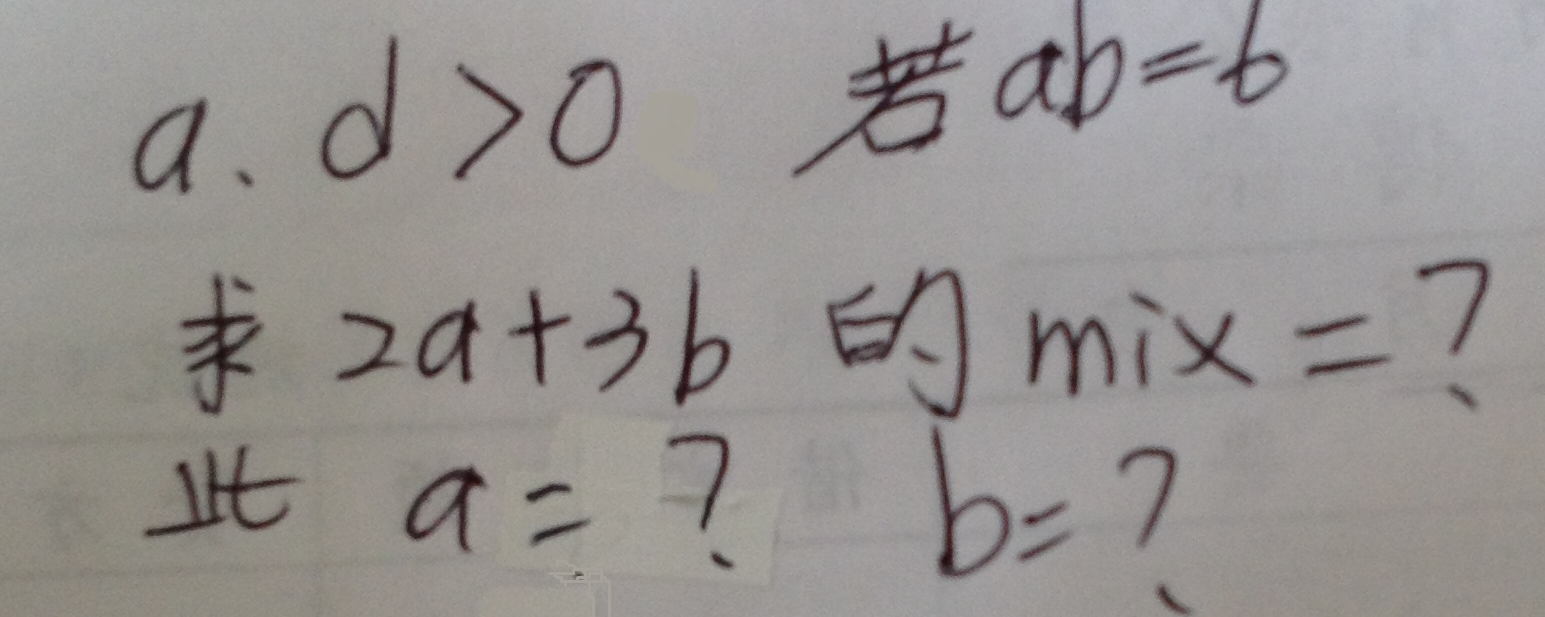 a、d>0 若ab=6
求 2a+3b 的 mix=?
此 a=? b=?